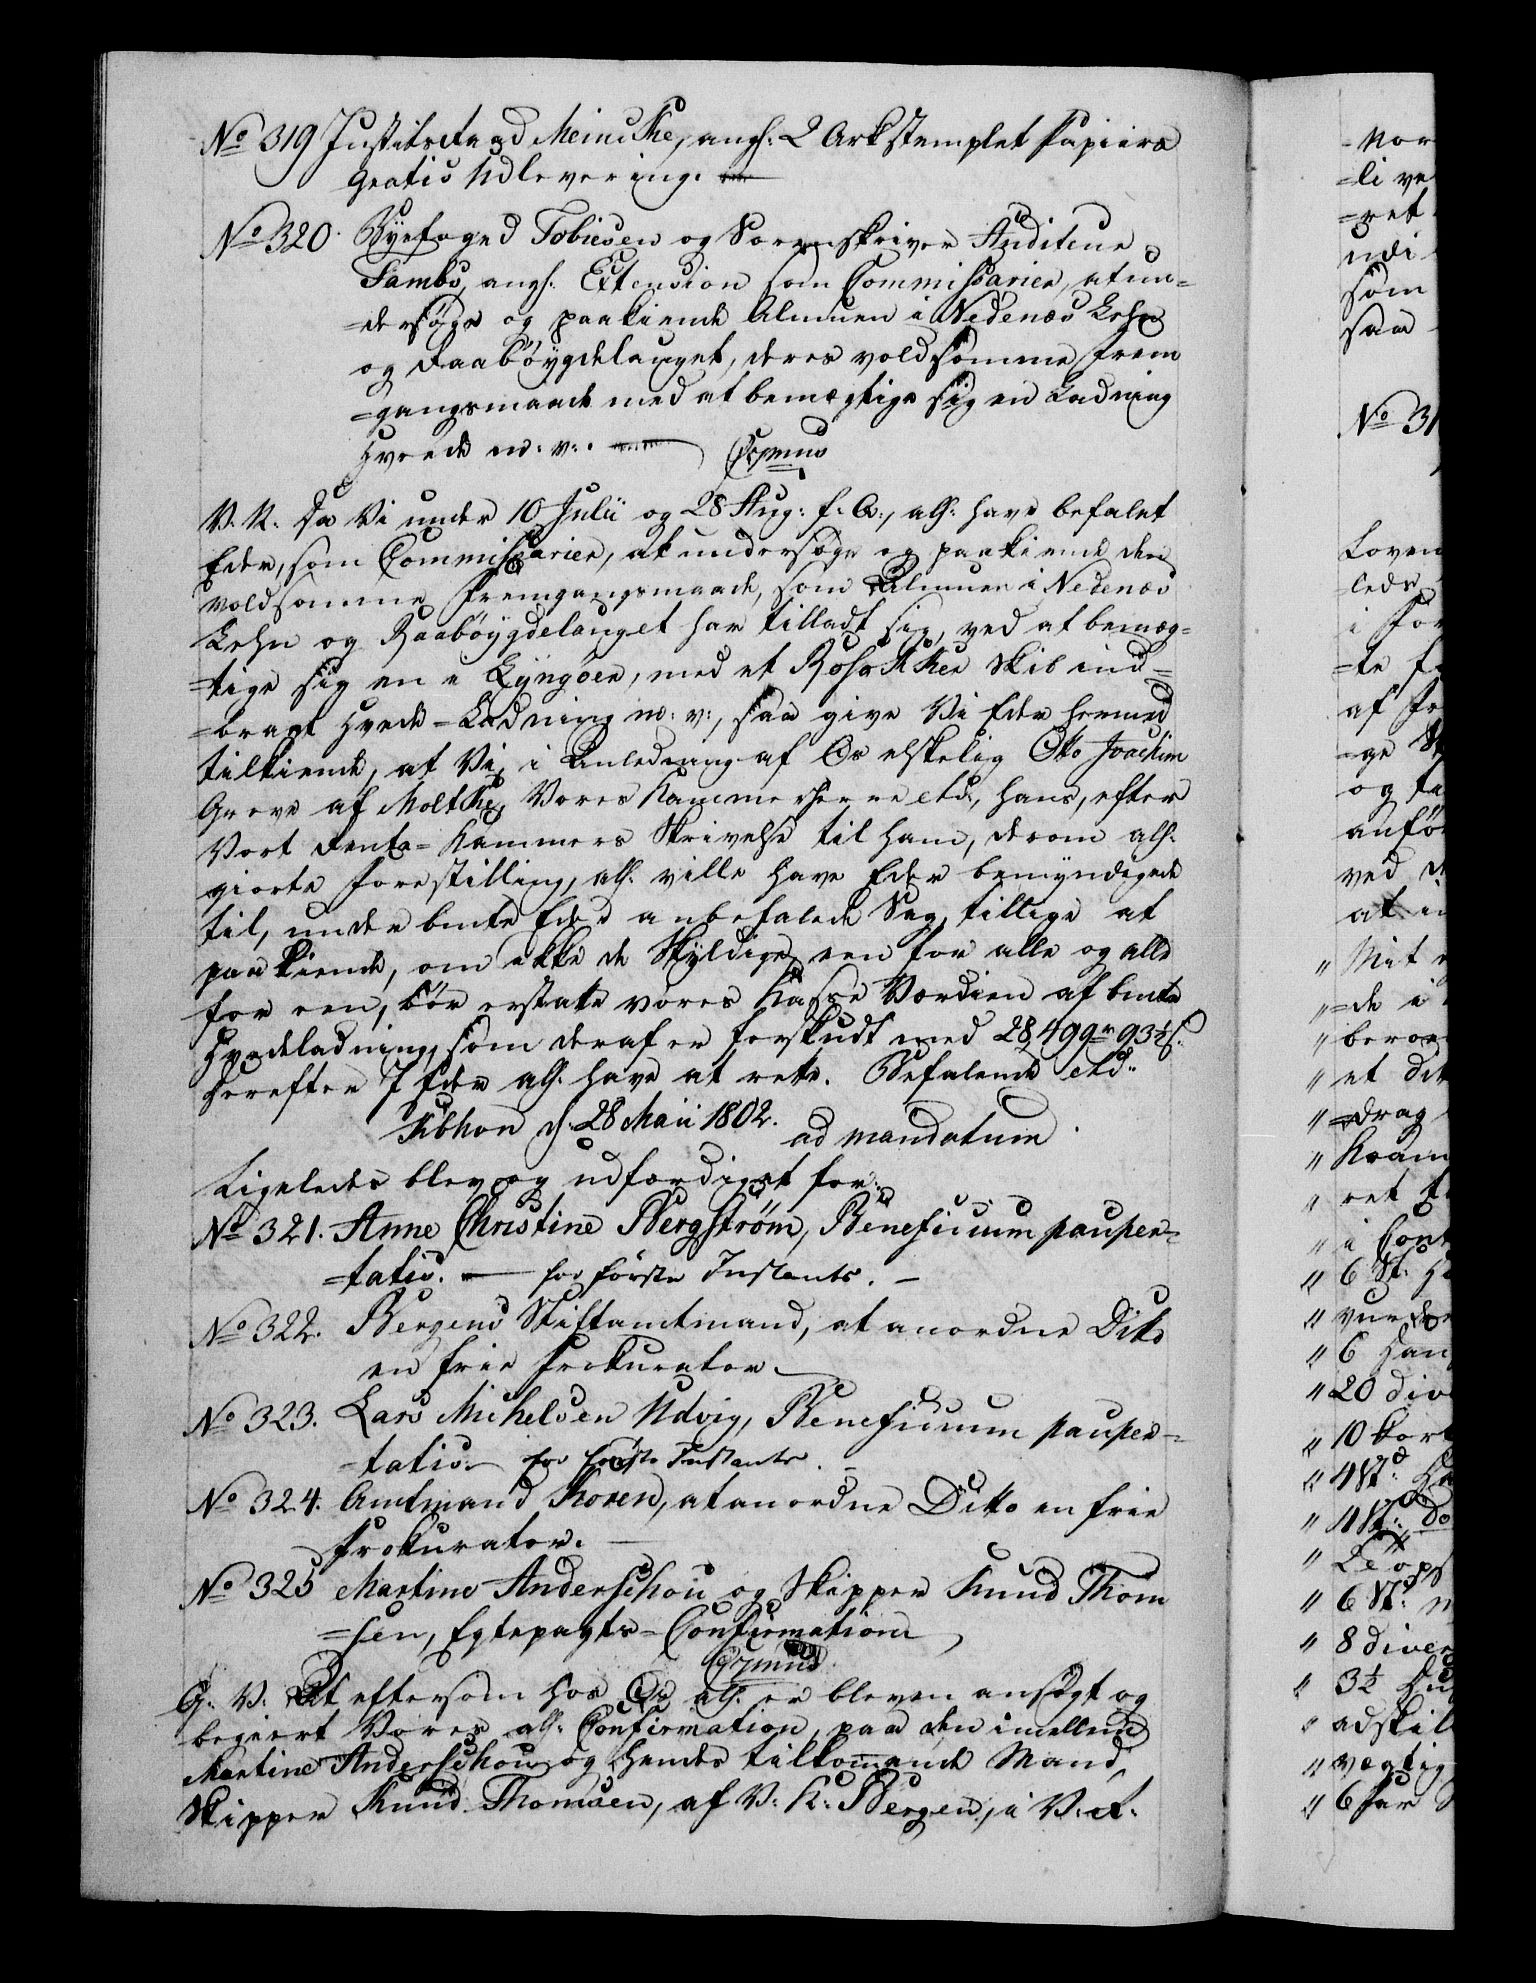 No 319 Justitsraad Meincke, angs: 2 Ark stemplet Papiirs
Gratis Udlevering.
No 320. Byefoged Tobiesen og Sorenskriver Auditeur
Fambs, angs. Extension som Commissarier, at un-
=dersøge og paakiende Almuen i Nedenæs Lehn
og Raabøygdelauget, deres voldsomme frem
=gangsmaade med at bemægtige sig en Ladning
Hvede m: v:.
Copiens
V. K. Da Vi under 10 Julii og 28 Aug: f: A:, allr. have befalet
Eder, som Commissarier, at undersøge og paakiende den
voldsomme Fremgangsmaade, som Almuen i Nedenæs
Lehn og Raabøygdelauget har tilladt sig, ved at bemæg-
=tige sig en i Lyngøer, med et Rostokker Skib ind-
=bragt Hvede-Ladning m: v:, saa give Vi Eder hermed
tilkiende, at Vi, i Anledning af Os elskelig Otto Joachim
Greve af Moltke, Vores Kammerherre etc:, hans, efter
Vort Rente-Kammers Skrivelse til ham, derom allr.
giorte Forestilling, allr. ville have Eder bemyndigede
til, under bmte Eder anbefalede Sag, tillige at
paakiende, om ikke de Skyldige, een for alle og alle
for een, bør erstatte vores Kasse Værdien af bmte
Hvedeladning, som deraf er forskudt med 28,499 rd 93½ s.
Herefter I Eder allr. have at rette. Befalende etc:
Kbhvn d. 28 Maii 1802. ad mandatum.
Ligeledes blev og udfærdiget for:
No 321. Anne Christine Bergstrøm, Beneficium pauper-
=tatis. — for første Instants. —
No 322. Bergens Stiftamtmand, at anordne Dito
en frie Prokurator.
No 323. Lars Michelsen Udvig, Beneficium pauper-
=tatis. for første Instants. —
No 324. Amtmand Koren, at anordne Ditto en frie
Prokurator. —
No 325 Martine Anderschou og Skipper Knud Thom
=sen, Egtepagts-Confirmation
Copiens
G: V: At eftersom hos Os allr. er bleven ansøgt og
begiert Vores allr. Confirmation, paa den imellem
Martine Anderschou og hendes tilkommende Mand,
Skipper Knud Thomsen, af V: K: Bergen, i V: R:
Nor
=li ve
=ret
udi
som
saa
No 31
Loven
=leds
i For
=te f
af
=ge
og ta
anfø
ved
at in
" Mit
"=de i
" beroe
" et div
"=drag
" Kram
" ret
" i Cont
" 6 St:
" vurder
" 6 Han
" 20 div
" 10 Kort
" 4 St:
" 4 St: do
"
" 6 St:
" 8 diver
" 3½
" adskil
" vægtig
" 6 Par